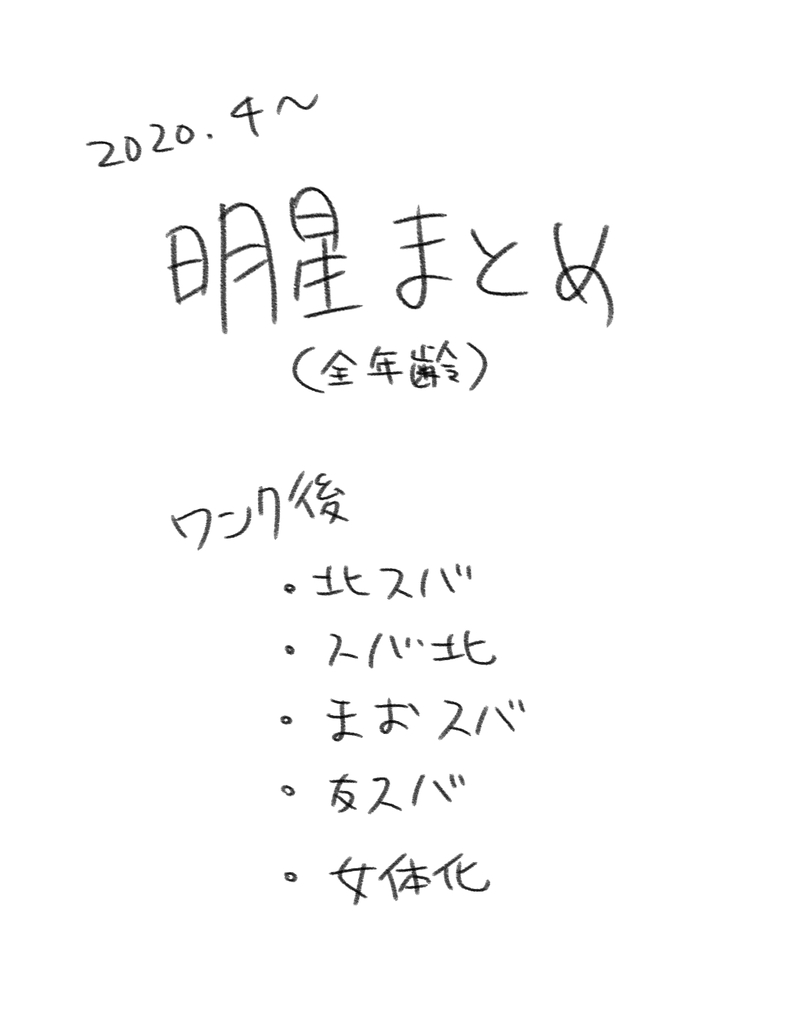 2020.4〜
明星まとめ
(全年齢)
ワンク後
・北スバ
・スバ北
・まおスバ
・友スバ
・女体化